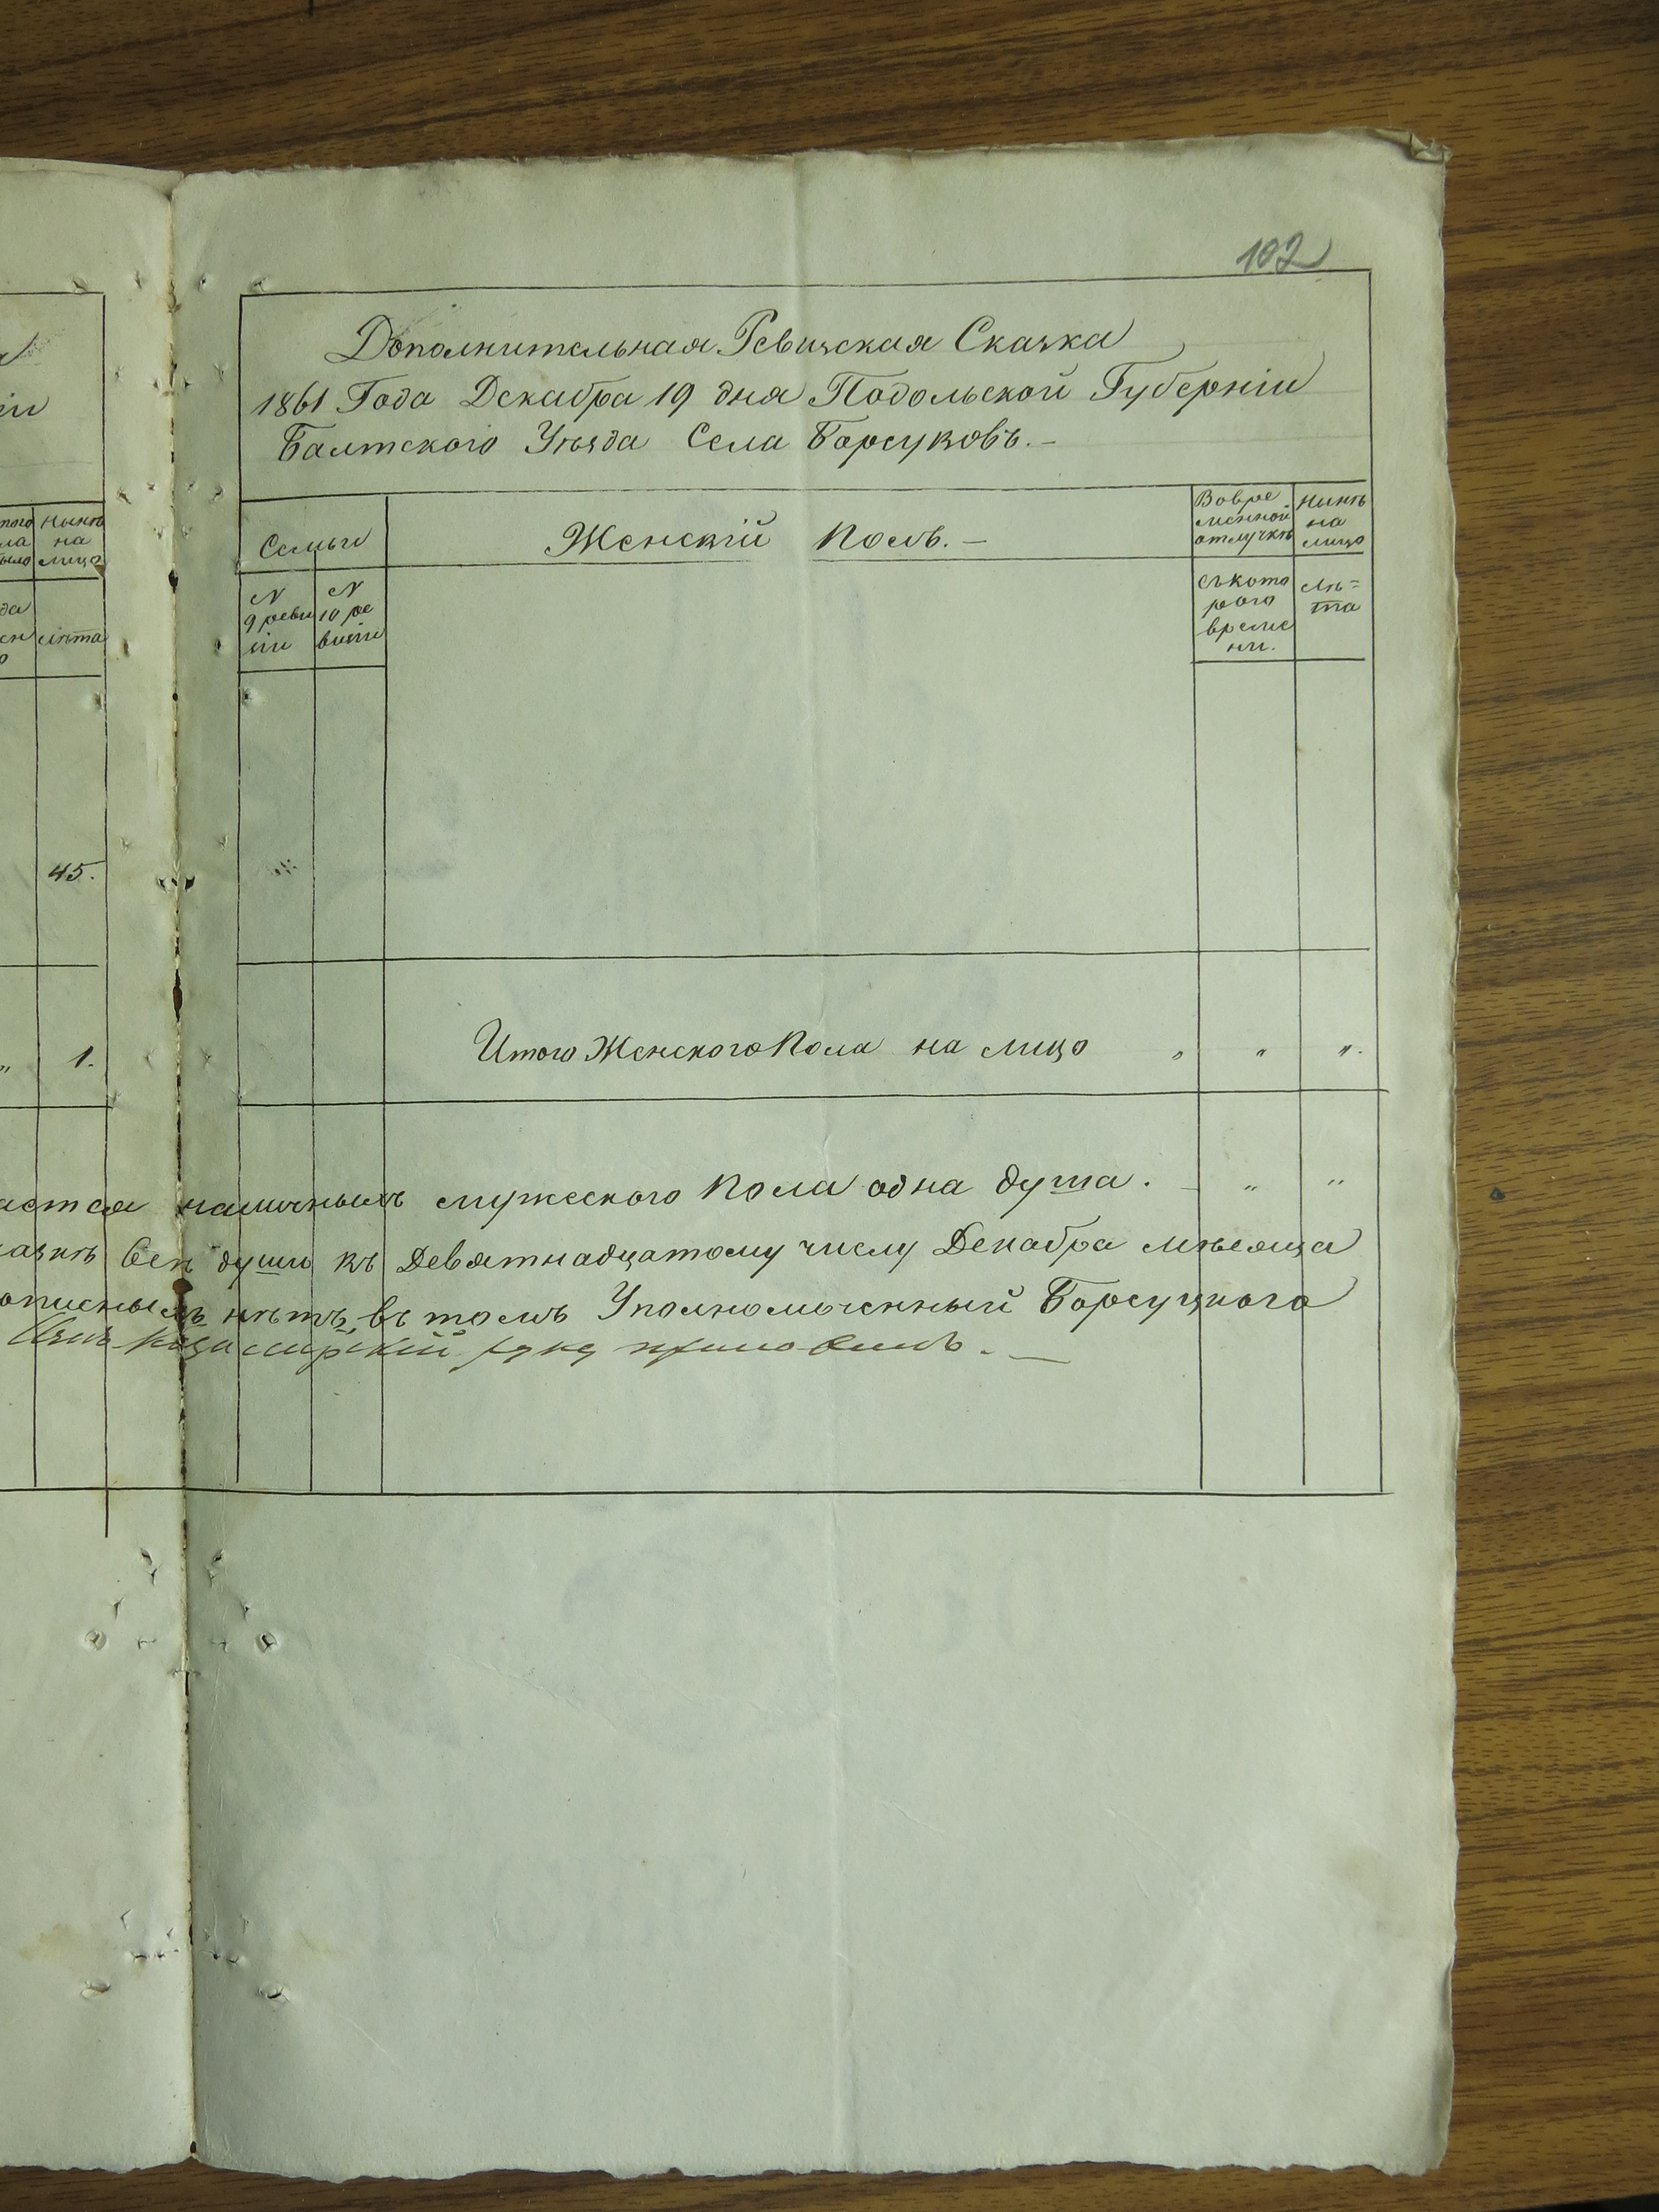 102
Дополнительная Ревизская Сказка
1861 Года Декабра 19 дня Подольской Губерніи
Балтского Уѣзда Села Борсуковъ. –
Семьи
Женскій Полъ. –
Вовре
менной
отлучкѣ
Нынѣ
на
лицо
N
9 реви
зіи
N
10 ре
визіи
съ кото
раго
време
ни.
лѣ=
та
нынѣ
на
лицо
лѣта
45.
Итого Женского Пола на лицо " " ".
" 1.
наличныхъ мужеского Пола одна душа. – " "
всѣ души къ Девятнадцатому числу Декабра мѣсяца
нѣтъ, въ томъ Уполномоченный Борсуцкого
руку приложилъ. —